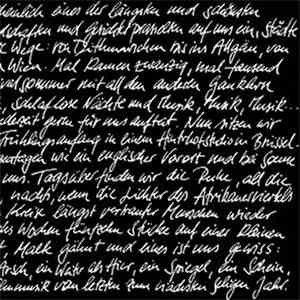 einer der längsten und schönsten
und Gesichter prasselten auf uns ein, Städte
Wege: von Dithmarschen bis ins Allgäu, von
Wien. Mal kamen zwanzig, mal tausend
mit all den anderen Gauklern
schlaflose Nächte und Musik, Musik, Musik...
jederzeit gern für uns auftat. Nun sitzen wir
Frühlingsanfang in einem Hinterhofstudio in Brüssel
wie ein englischer Vorort und bei Sonne
uns. Tagsüber finden wir die Ruhe, all die
nachts, wenn die Lichter des Afrikanerviertels
Kreis längst vertrauter Menschen wieder
Wochen fünfzehn Stücke auf einer kleinen
Malk gähnt und eines ist uns gewiss:
Arsch, ein Winter als Hier, ein Spiegel, ein Schein,
vom letzten zum nächsten seligen Jahr.